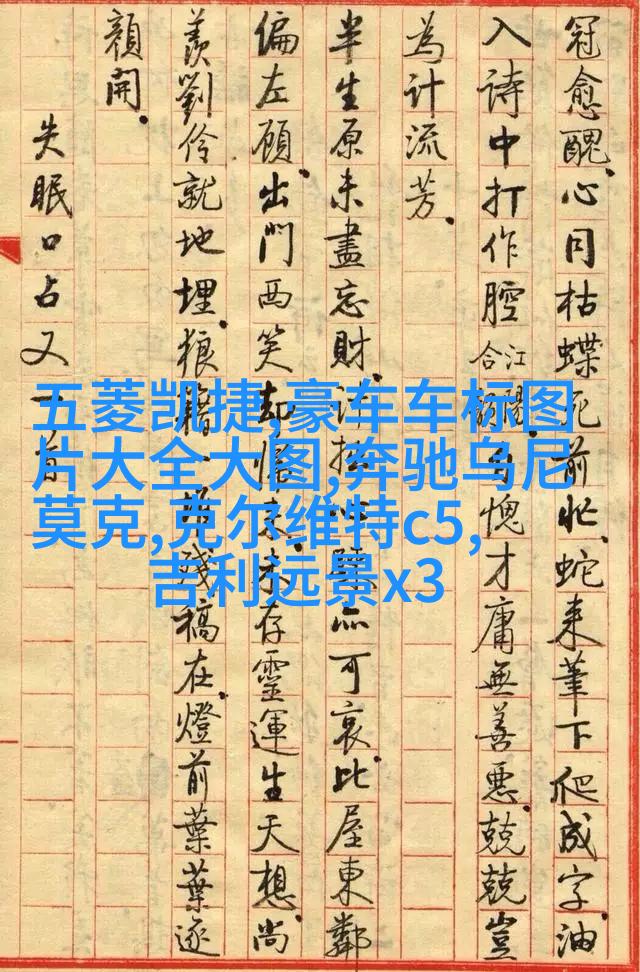 冠愈醜。心同枯蝶死前忙。蛇来筆下爬成字。油
入詩中打作腔 自愧才庸無善惡。兢兢豈
為計流芳。
半生原未盡忘財。可哀。比屋東鄰
偏左顧。出門西笑却 未存靈運生天想。尚
羨劉伶就地埋。狼籍一 残稿在。燈前葉葉逐
顔開。
失眠口占又一首
五菱凯捷,豪车车标图
片大全大图,奔驰乌尼
莫克,克尔维特c5,
吉利远景x3